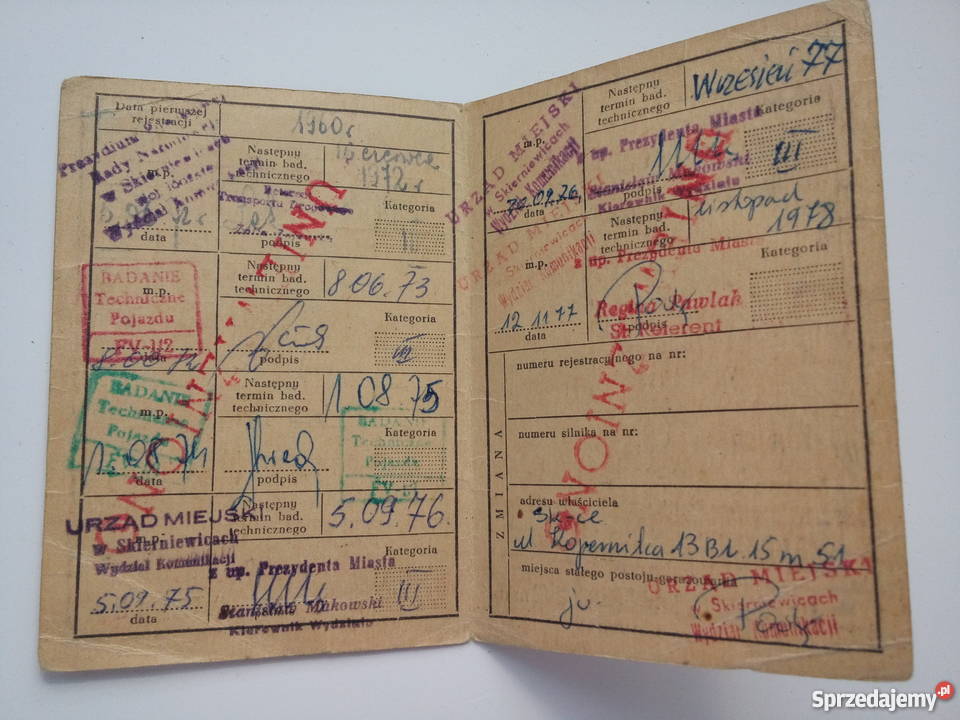 Data pierwszej
rejestracji
1960r
Prezydium
Rady Narodowej
w Skierniewicach
Wydział
Następny
termin bad.
technicznego
16 czerwca
1972 r
Kategoria
data
podpis
II
UNIEWAŻNIONO
BADANIE
Techniczne
Pojazdu
m.p.
data
Następny
termin bad.
technicznego
8 06. 73
Kategoria
podpis
III
BADANIE
Techniczne
Pojazdu
m.p.
1.08.74
data
Następny
termin bad.
technicznego
1.08.75
Kategoria
podpis
BADANIE
Techniczne
Pojazdu
URZĄD MIEJSKI
w Skierniewicach
Wydział Komunikacji
m.p.
5.09.75
data
Następny
termin bad.
technicznego
5.09.76.
Kategoria
z up. Prezydenta Miasta
III
Kierownik Wydziału
URZĄD MIEJSKI
w Skierniewicach
Wydział Komunikacji
m.p.
data
Następny
termin bad.
technicznego
Wrzesień 77
Kategoria
z up. Prezydenta Miasta
III
Kierownik Wydziału
URZĄD MIEJSKI
Skierniewicach
Wydział Komunikacji
m.p.
12 11 77
data
Następny
termin bad.
technicznego
listopad
1978
z up. Prezydenta Miasta
Kategoria
Regina Pawlak
podpis
St. Referent
UNIEWAŻNIONO
ZMIANA
numeru rejestracyjnego na nr:
numeru silnika na nr:
adresu właściciela
Sk-ce
ul Kopernika 13 Bl. 15 m 51
miejsca stałego postoju-garażowania
URZĄD MIEJSKI
Skierniewicach
Wydział Komunikacji
Sprzedajemy.pl